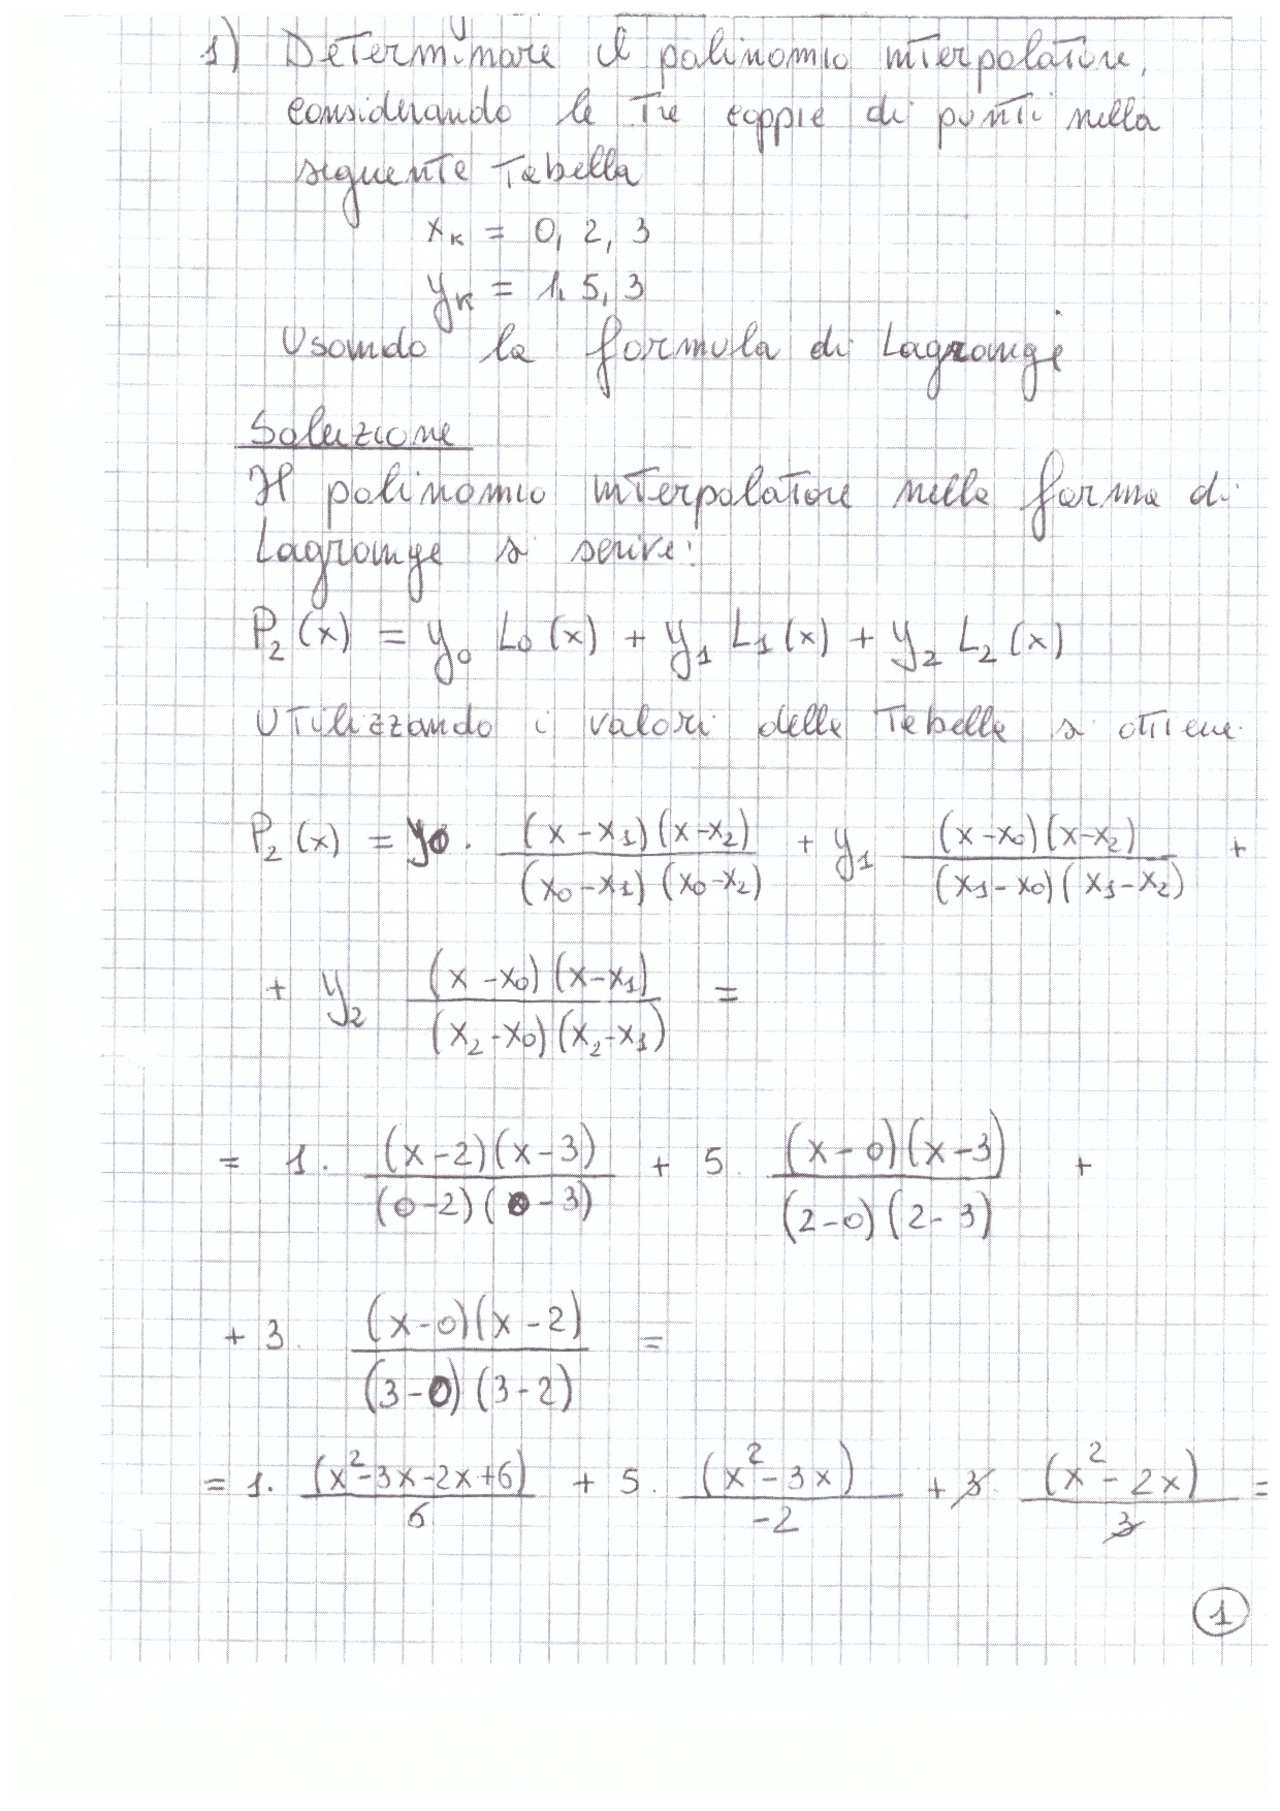 1) Determinare il polinomio interpolatore,
considerando le tre coppie di punti nella
seguente tabella
xₖ = 0, 2, 3
yₖ = 1, 5, 3
Usando la formula di Lagrange
Soluzione
Il polinomio interpolatore nella forma di
Lagrange si scrive:
P₂(x) = y₀ L₀(x) + y₁ L₁(x) + y₂ L₂(x)
Utilizzando i valori della tabella si ottiene
P₂(x) = y₀ · (x-x₁)(x-x₂) / (x₀-x₁)(x₀-x₂) + y₁ (x-x₀)(x-x₂) / (x₁-x₀)(x₁-x₂) +
+ y₂ (x-x₀)(x-x₁) / (x₂-x₀)(x₂-x₁) =
= 1 · (x-2)(x-3) / (0-2)(0-3) + 5 · (x-0)(x-3) / (2-0)(2-3) +
+ 3 · (x-0)(x-2) / (3-0)(3-2) =
= 1 · (x²-3x-2x+6) / 6 + 5 · (x²-3x) / -2 + 3 · (x²-2x) / 3 =
1